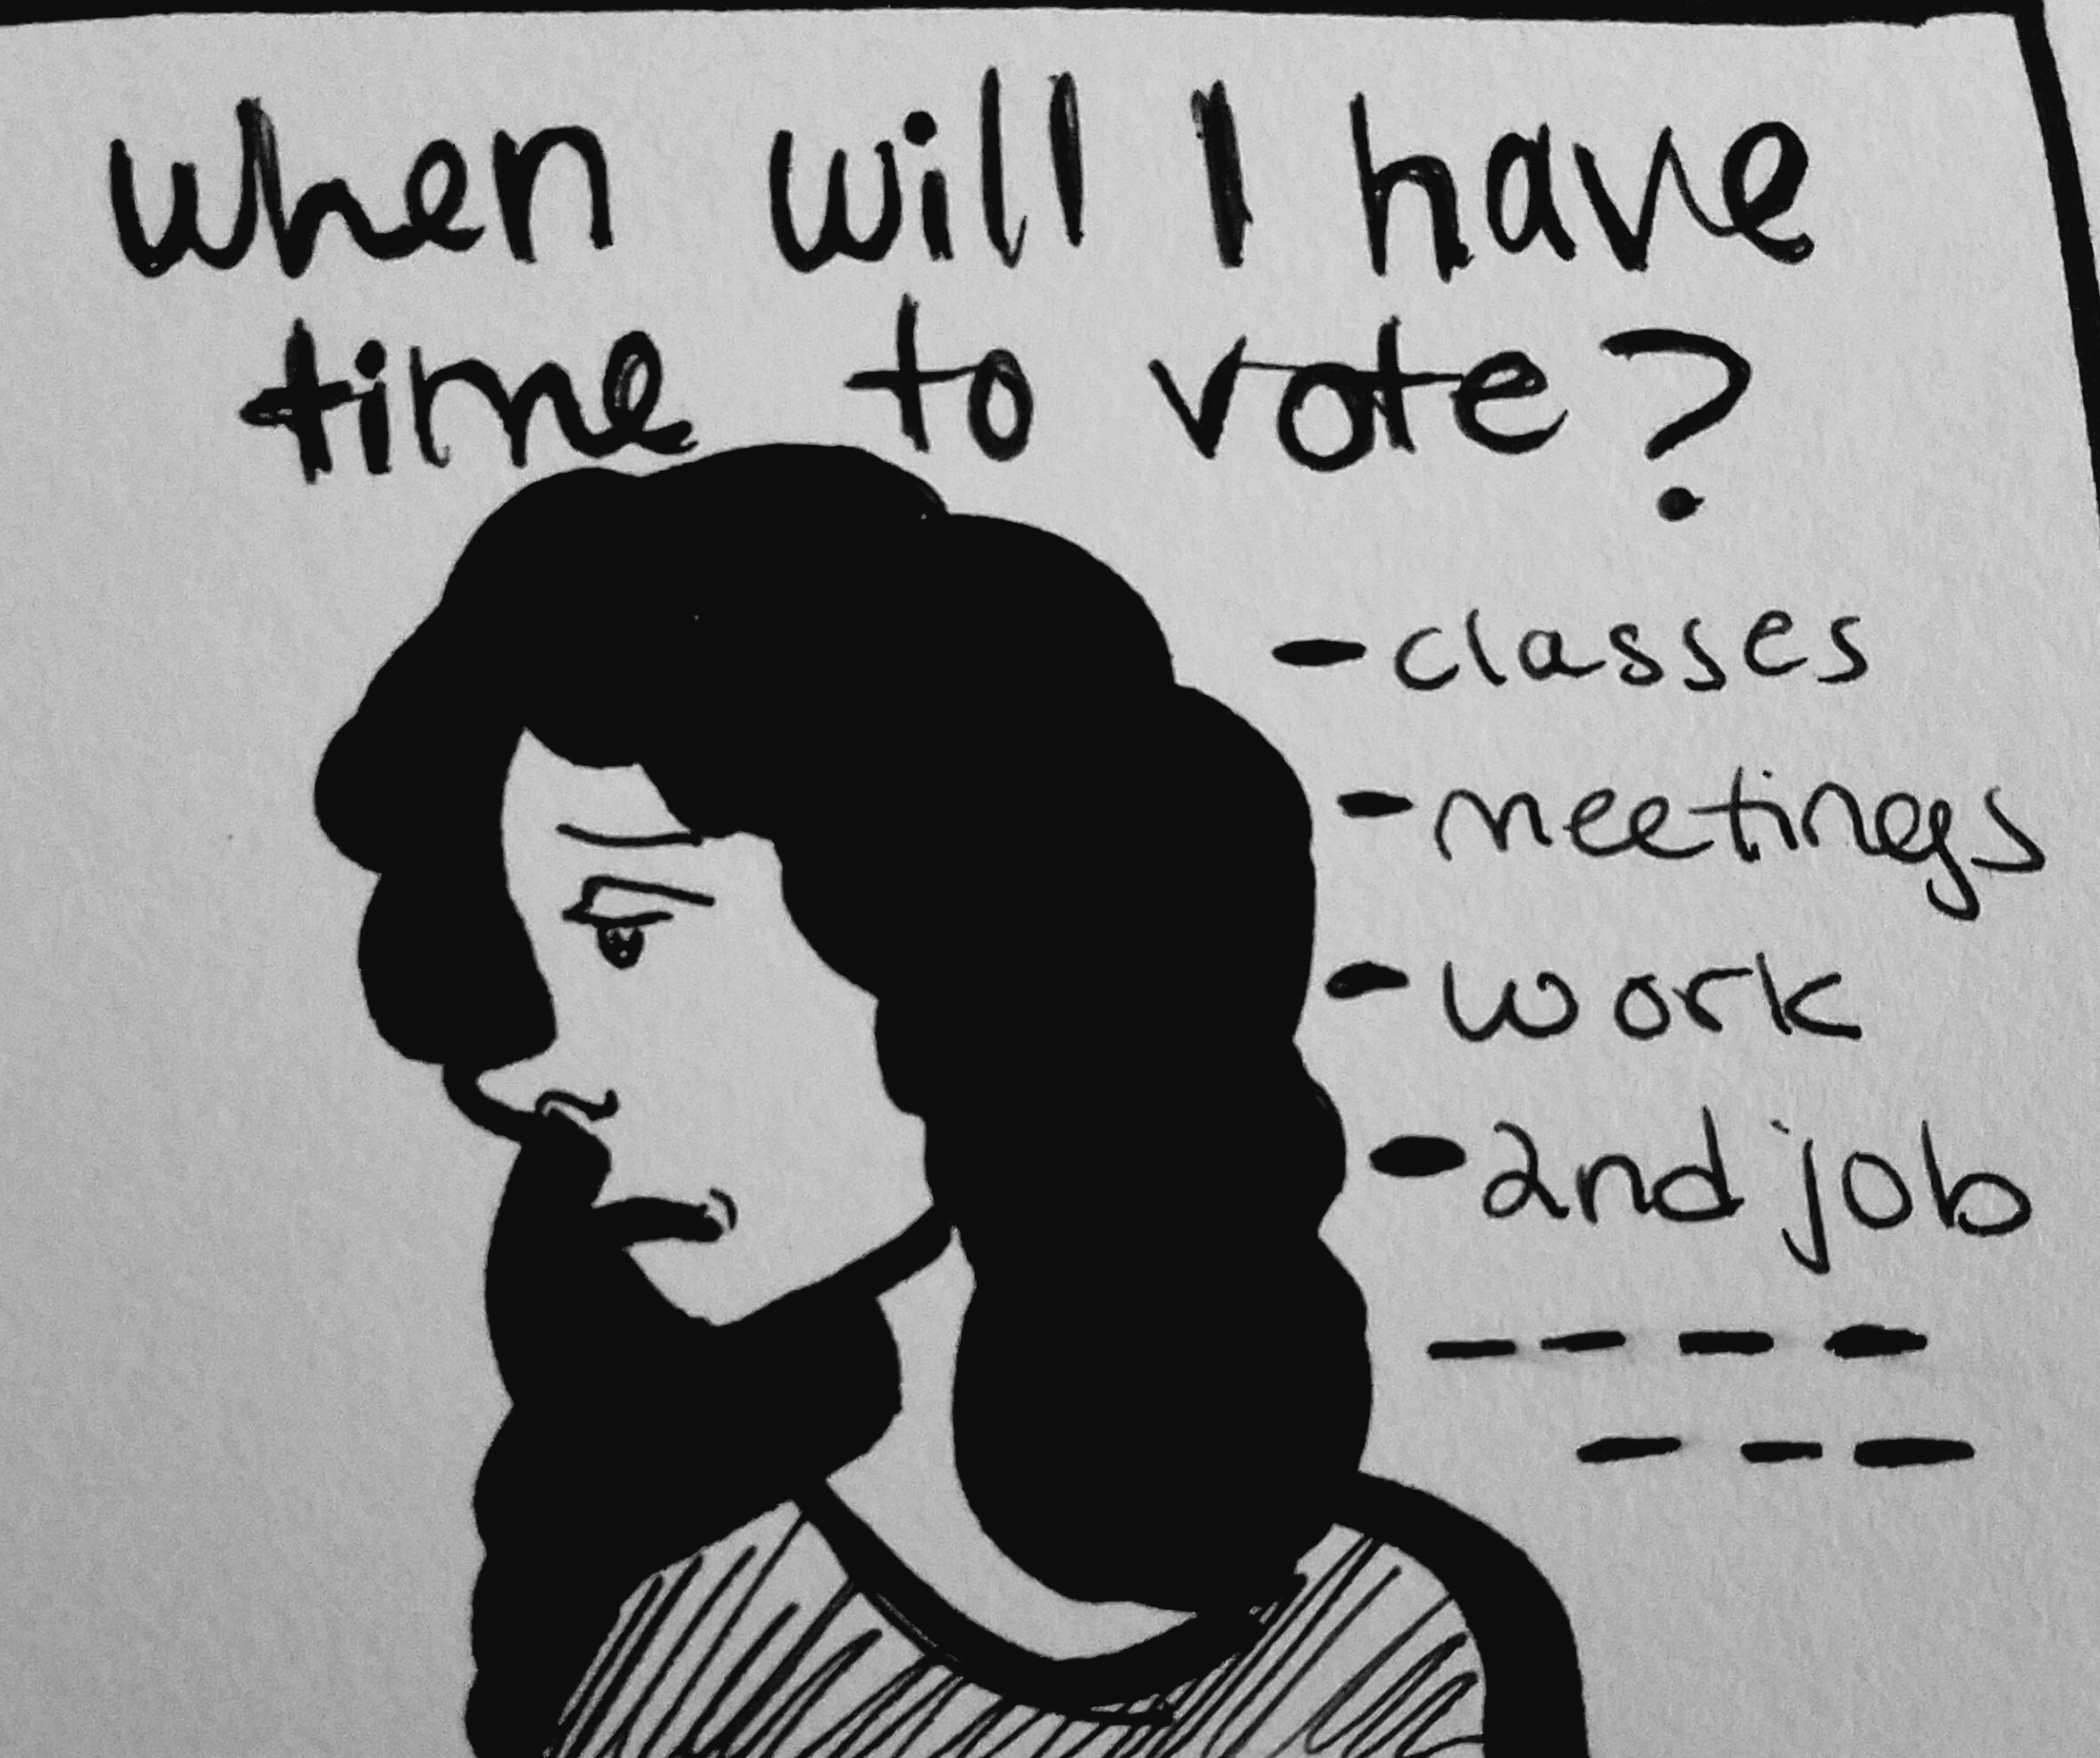 when will I have
time to vote?
- classes
- meetings
- work
- 2nd job